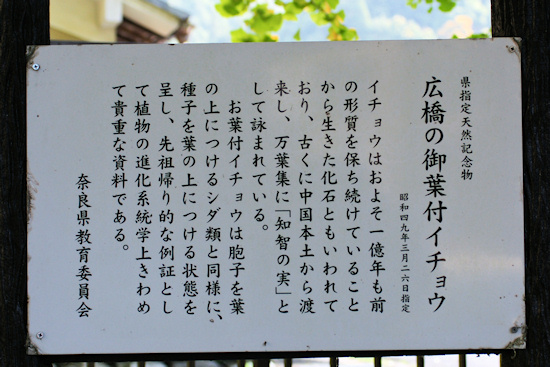 県指定天然記念物
広橋の御葉付イチョウ
昭和四九年三月二六日指定
イチョウはおよそ一億年も前
の形質を保ち続けていること
から生きた化石ともいわれて
おり、古くに中国本土から渡
来し、万葉集に「知智の実」と
して詠まれている。
お葉付イチョウは胞子を葉
の上につけるシダ類と同様に、
種子を葉の上につける状態を
呈し、先祖帰り的な例証とし
て植物の進化系統学上きわめ
て貴重な資料である。
奈良県教育委員会